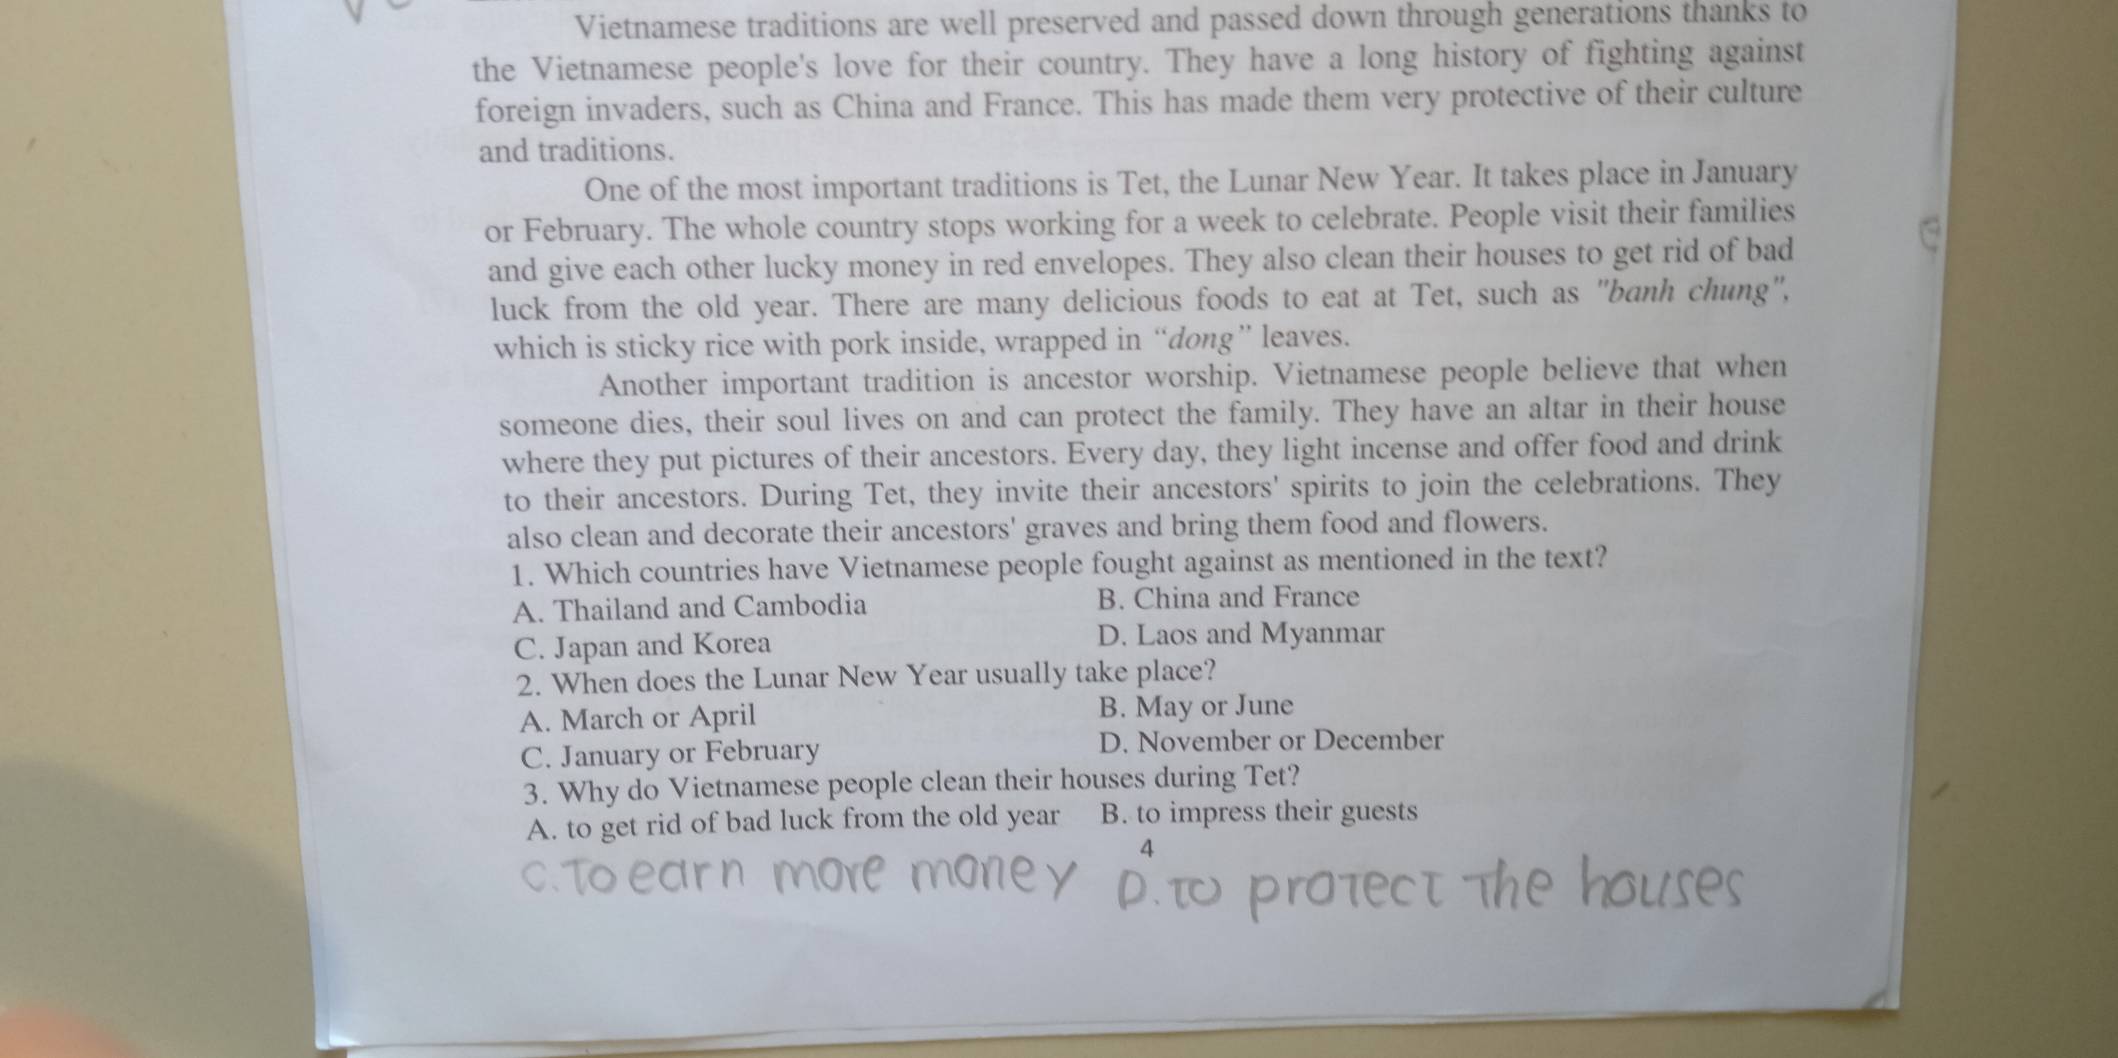 Vietnamese traditions are well preserved and passed down through generations thanks to
the Vietnamese people's love for their country. They have a long history of fighting against
foreign invaders, such as China and France. This has made them very protective of their culture
and traditions.
One of the most important traditions is Tet, the Lunar New Year. It takes place in January
or February. The whole country stops working for a week to celebrate. People visit their families
and give each other lucky money in red envelopes. They also clean their houses to get rid of bad
luck from the old year. There are many delicious foods to eat at Tet, such as "banh chung",
which is sticky rice with pork inside, wrapped in “dong” leaves.
Another important tradition is ancestor worship. Vietnamese people believe that when
someone dies, their soul lives on and can protect the family. They have an altar in their house
where they put pictures of their ancestors. Every day, they light incense and offer food and drink
to their ancestors. During Tet, they invite their ancestors' spirits to join the celebrations. They
also clean and decorate their ancestors' graves and bring them food and flowers.
1. Which countries have Vietnamese people fought against as mentioned in the text?
A. Thailand and Cambodia B. China and France
C. Japan and Korea D. Laos and Myanmar
2. When does the Lunar New Year usually take place?
A. March or April B. May or June
C. January or February D. November or December
3. Why do Vietnamese people clean their houses during Tet?
A. to get rid of bad luck from the old year B. to impress their guests
4
C. To earn more money D. to protect the houses